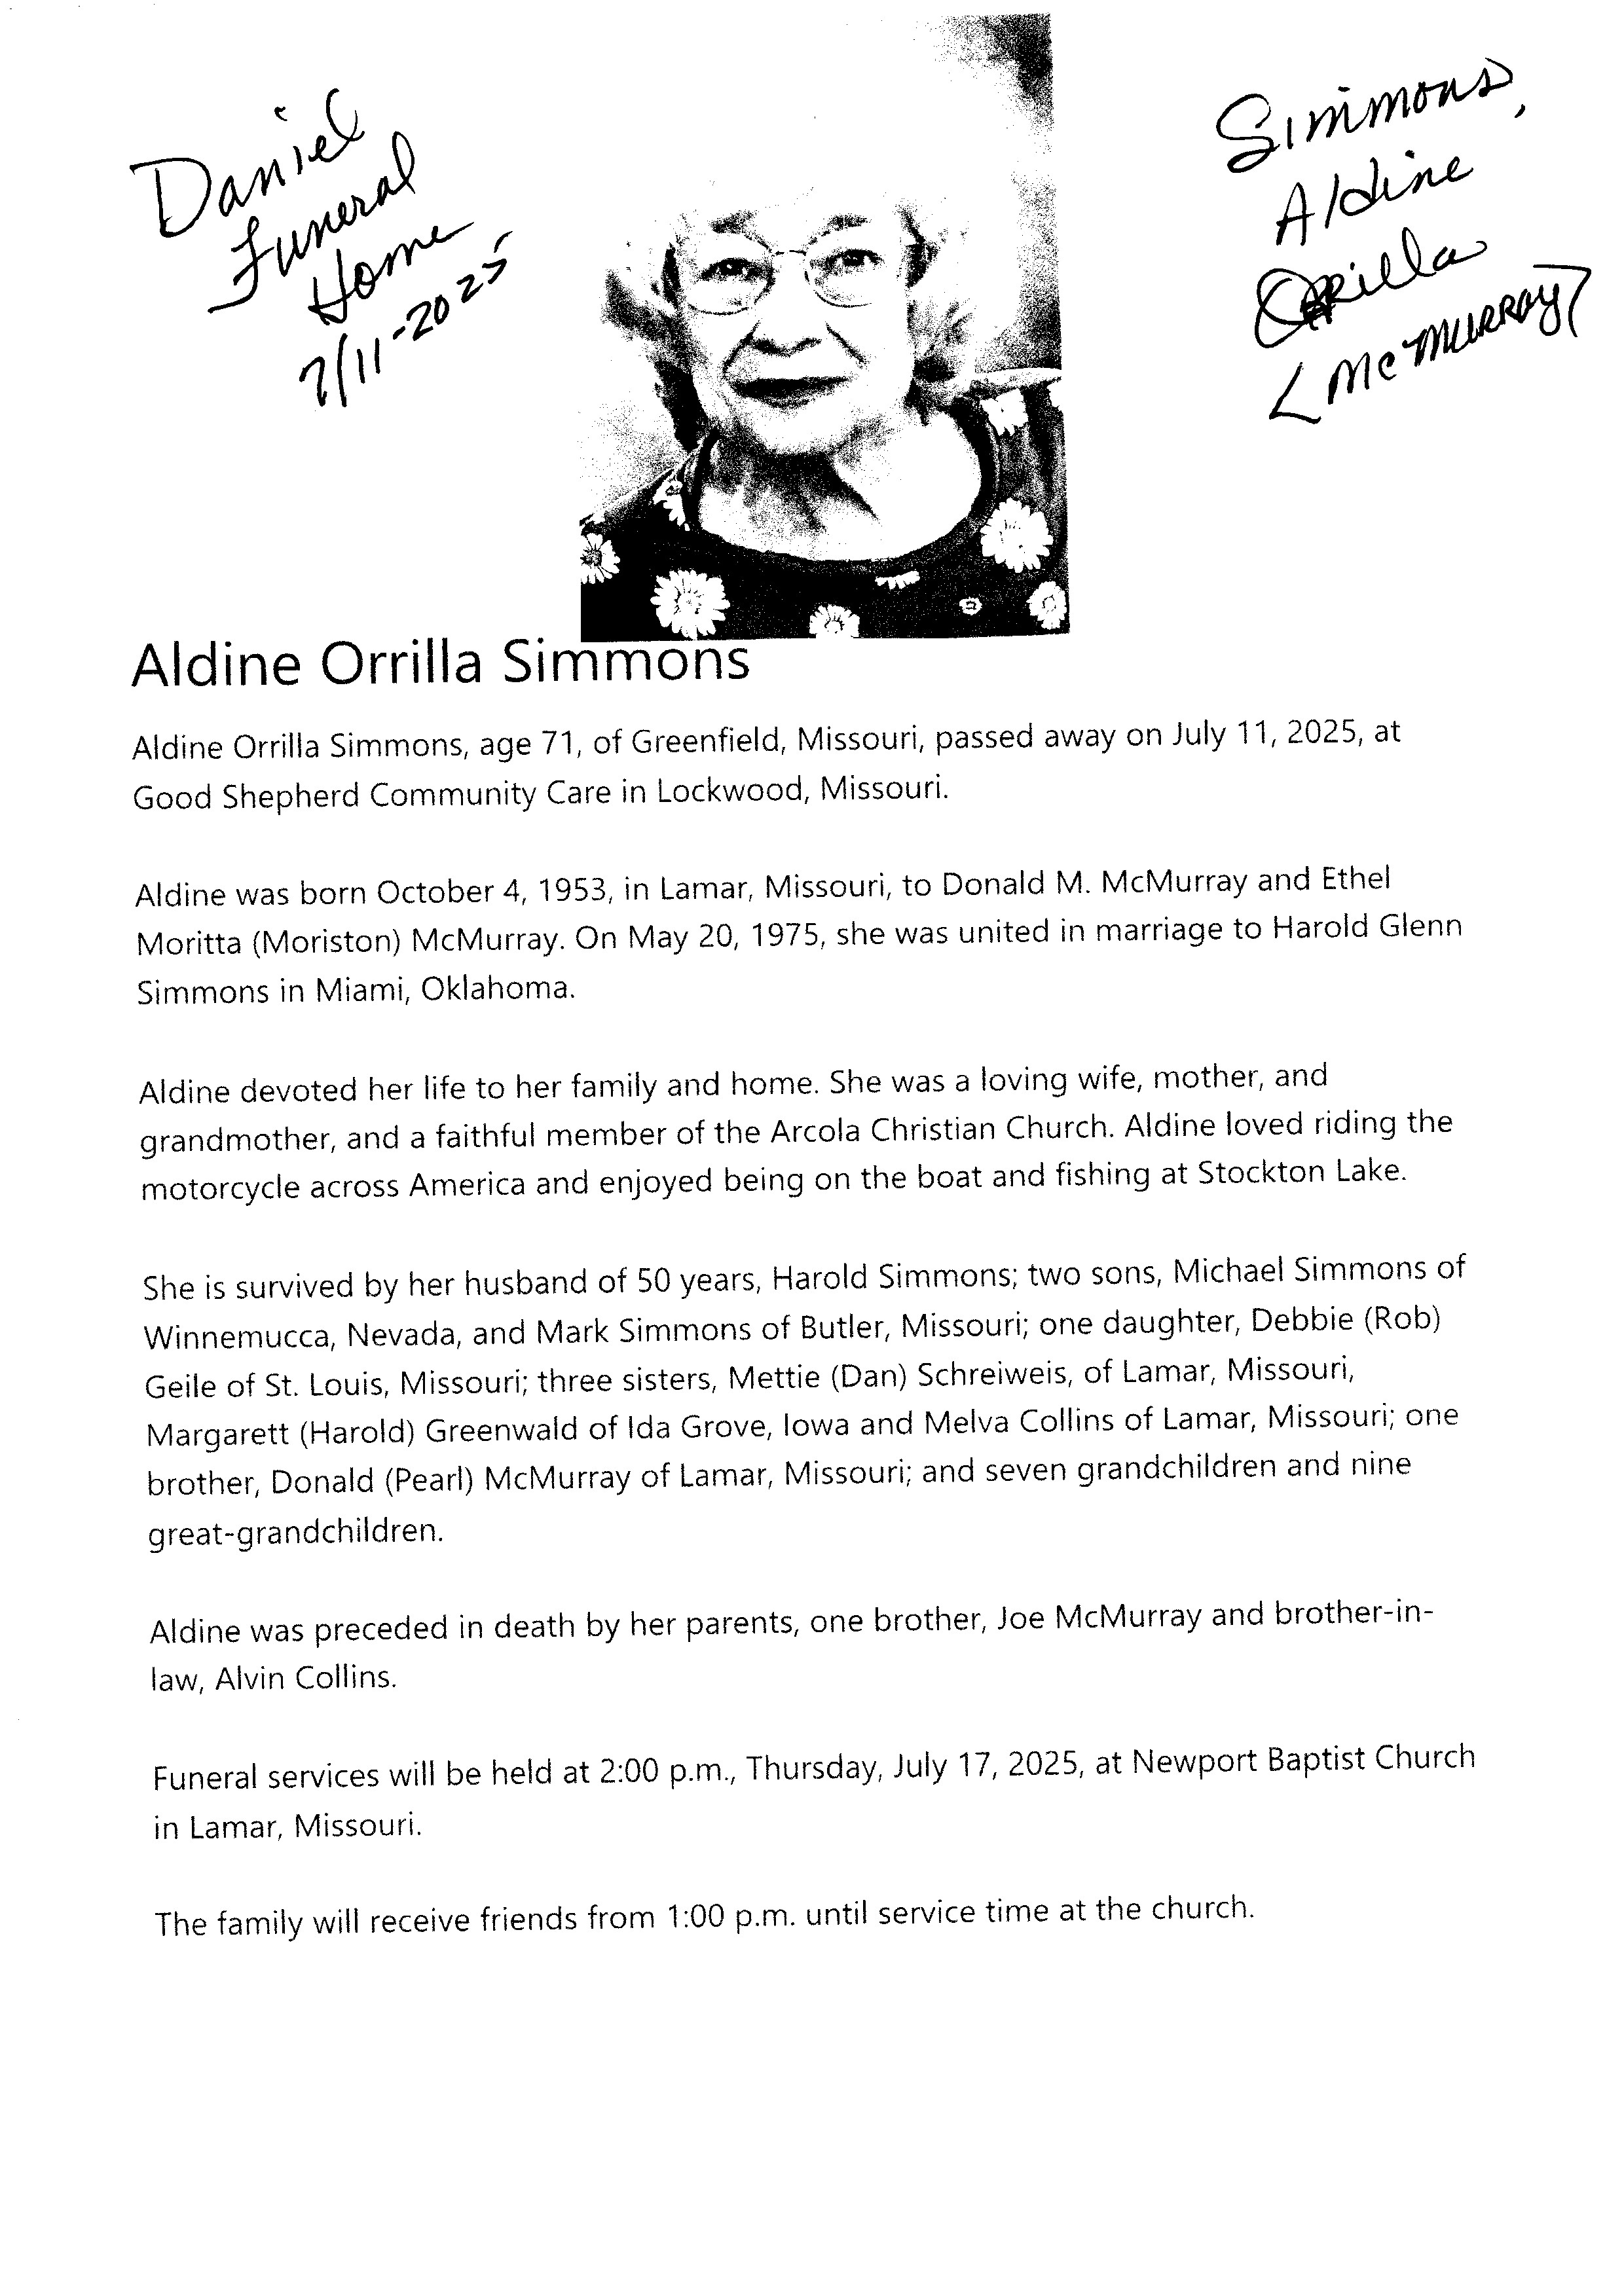 Daniel
Funeral
Home
7/11-2025
Simmons,
Aldine
Orrilla
<McMURRAY>
Aldine Orrilla Simmons
Aldine Orrilla Simmons, age 71, of Greenfield, Missouri, passed away on July 11, 2025, at
Good Shepherd Community Care in Lockwood, Missouri.
Aldine was born October 4, 1953, in Lamar, Missouri, to Donald M. McMurray and Ethel
Moritta (Moriston) McMurray. On May 20, 1975, she was united in marriage to Harold Glenn
Simmons in Miami, Oklahoma.
Aldine devoted her life to her family and home. She was a loving wife, mother, and
grandmother, and a faithful member of the Arcola Christian Church. Aldine loved riding the
motorcycle across America and enjoyed being on the boat and fishing at Stockton Lake.
She is survived by her husband of 50 years, Harold Simmons; two sons, Michael Simmons of
Winnemucca, Nevada, and Mark Simmons of Butler, Missouri; one daughter, Debbie (Rob)
Geile of St. Louis, Missouri; three sisters, Mettie (Dan) Schreiweis, of Lamar, Missouri,
Margarett (Harold) Greenwald of Ida Grove, Iowa and Melva Collins of Lamar, Missouri; one
brother, Donald (Pearl) McMurray of Lamar, Missouri; and seven grandchildren and nine
great-grandchildren.
Aldine was preceded in death by her parents, one brother, Joe McMurray and brother-in-
law, Alvin Collins.
Funeral services will be held at 2:00 p.m., Thursday, July 17, 2025, at Newport Baptist Church
in Lamar, Missouri.
The family will receive friends from 1:00 p.m. until service time at the church.